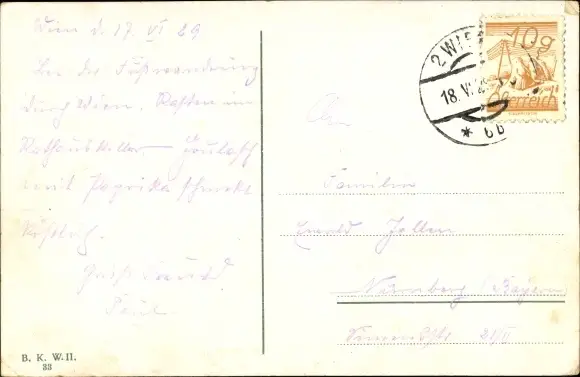 Wien d. 17. VI 29
Bei der Fußwanderung
durch Wien. Rasten im
Rathauskeller – Goulasch
mit Paprika schmeckt
köstlich.
Gruß
Paul
B. K. W. II.
33
2 WIE
18. V
* 6b
10g
Österreich
An
Familie
Nürnberg (Bayern)
21/II